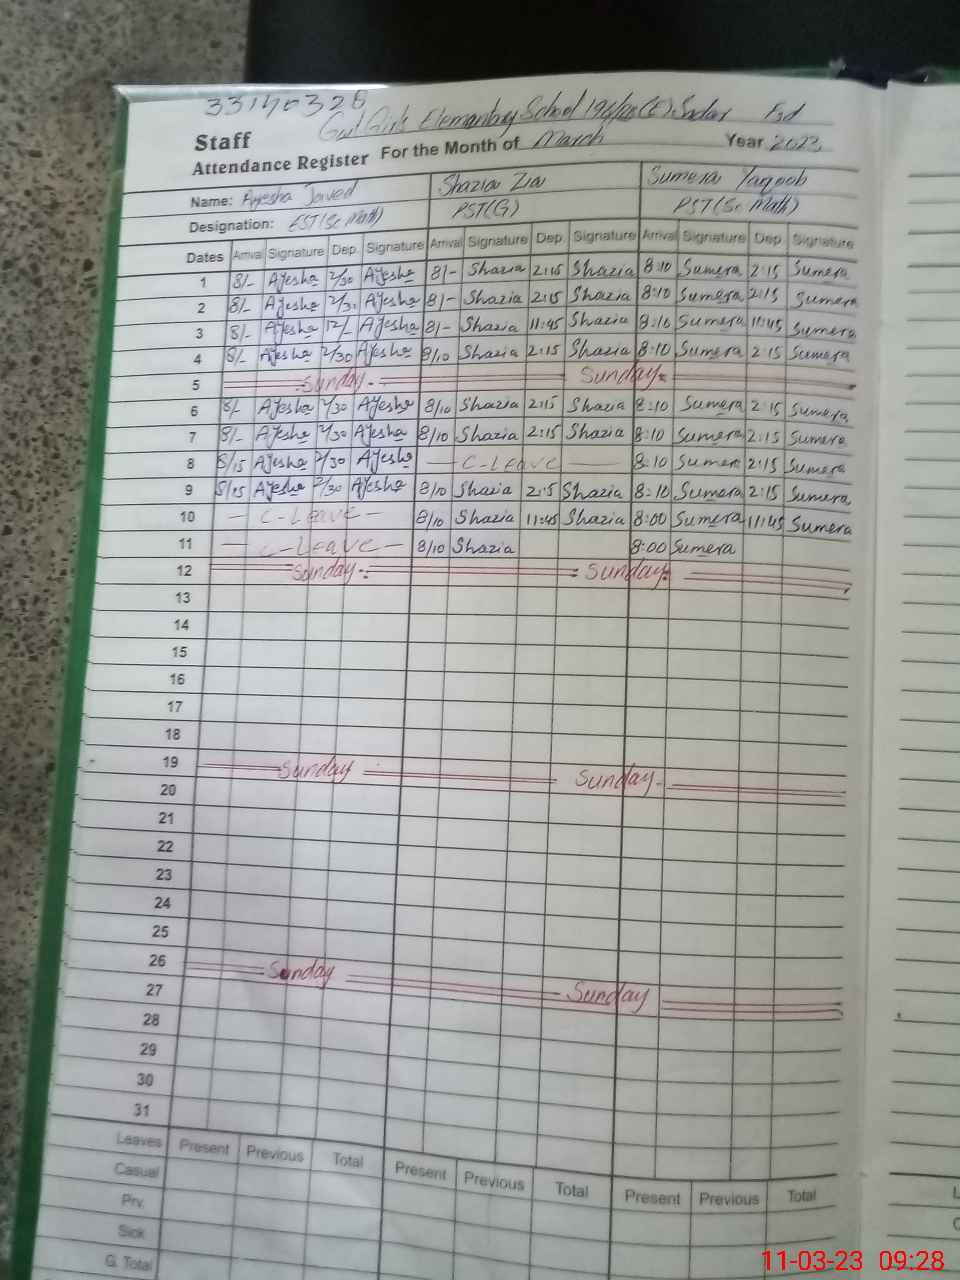 33140328
Govt Girls Elementary School 196/RB (E) Sadar Fsd
Staff
Attendance Register For the Month of March Year 2023
Name: Ayesha Javed Shazia Zia Sumera Yaqoob
Designation: EST(Sc Math) PST(G) PST(Sc Math)
Dates Arrival Signature Dep. Signature Arrival Signature Dep. Signature Arrival Signature Dep. Signature
1 8/- Ayesha 2/30 Ayesha 8/- Shazia 2:15 Shazia 8:10 Sumera 2:15 Sumera
2 8/- Ayesha 2/30 Ayesha 8/- Shazia 2:15 Shazia 8:10 Sumera 2:15 Sumera
3 8/- Ayesha 12/- Ayesha 8/- Shazia 11:45 Shazia 8:10 Sumera 11:45 Sumera
4 8/- Ayesha 2/30 Ayesha 8/10 Shazia 2:15 Shazia 8:10 Sumera 2:15 Sumera
5 Sunday Sunday
6 8/- Ayesha 2/30 Ayesha 8/10 Shazia 2:15 Shazia 8:10 Sumera 2:15 Sumera
7 8/- Ayesha 2/30 Ayesha 8/10 Shazia 2:15 Shazia 8:10 Sumera 2:15 Sumera
8 8/15 Ayesha 2/30 Ayesha C-Leave 8:10 Sumera 2:15 Sumera
9 8/15 Ayesha 2/30 Ayesha 8/10 Shazia 2:15 Shazia 8:10 Sumera 2:15 Sumera
10 - C-Leave - 8/10 Shazia 11:45 Shazia 8:00 Sumera 11:45 Sumera
11 - C-Leave - 8/10 Shazia 8:00 Sumera
12 Sunday Sunday
13
14
15
16
17
18
19 Sunday Sunday
20
21
22
23
24
25
26 Sunday
27 Sunday
28
29
30
31
Leaves Present Previous Total Present Previous Total Present Previous Total
Casual
Prv.
Sick
G. Total
11-03-23 09:28